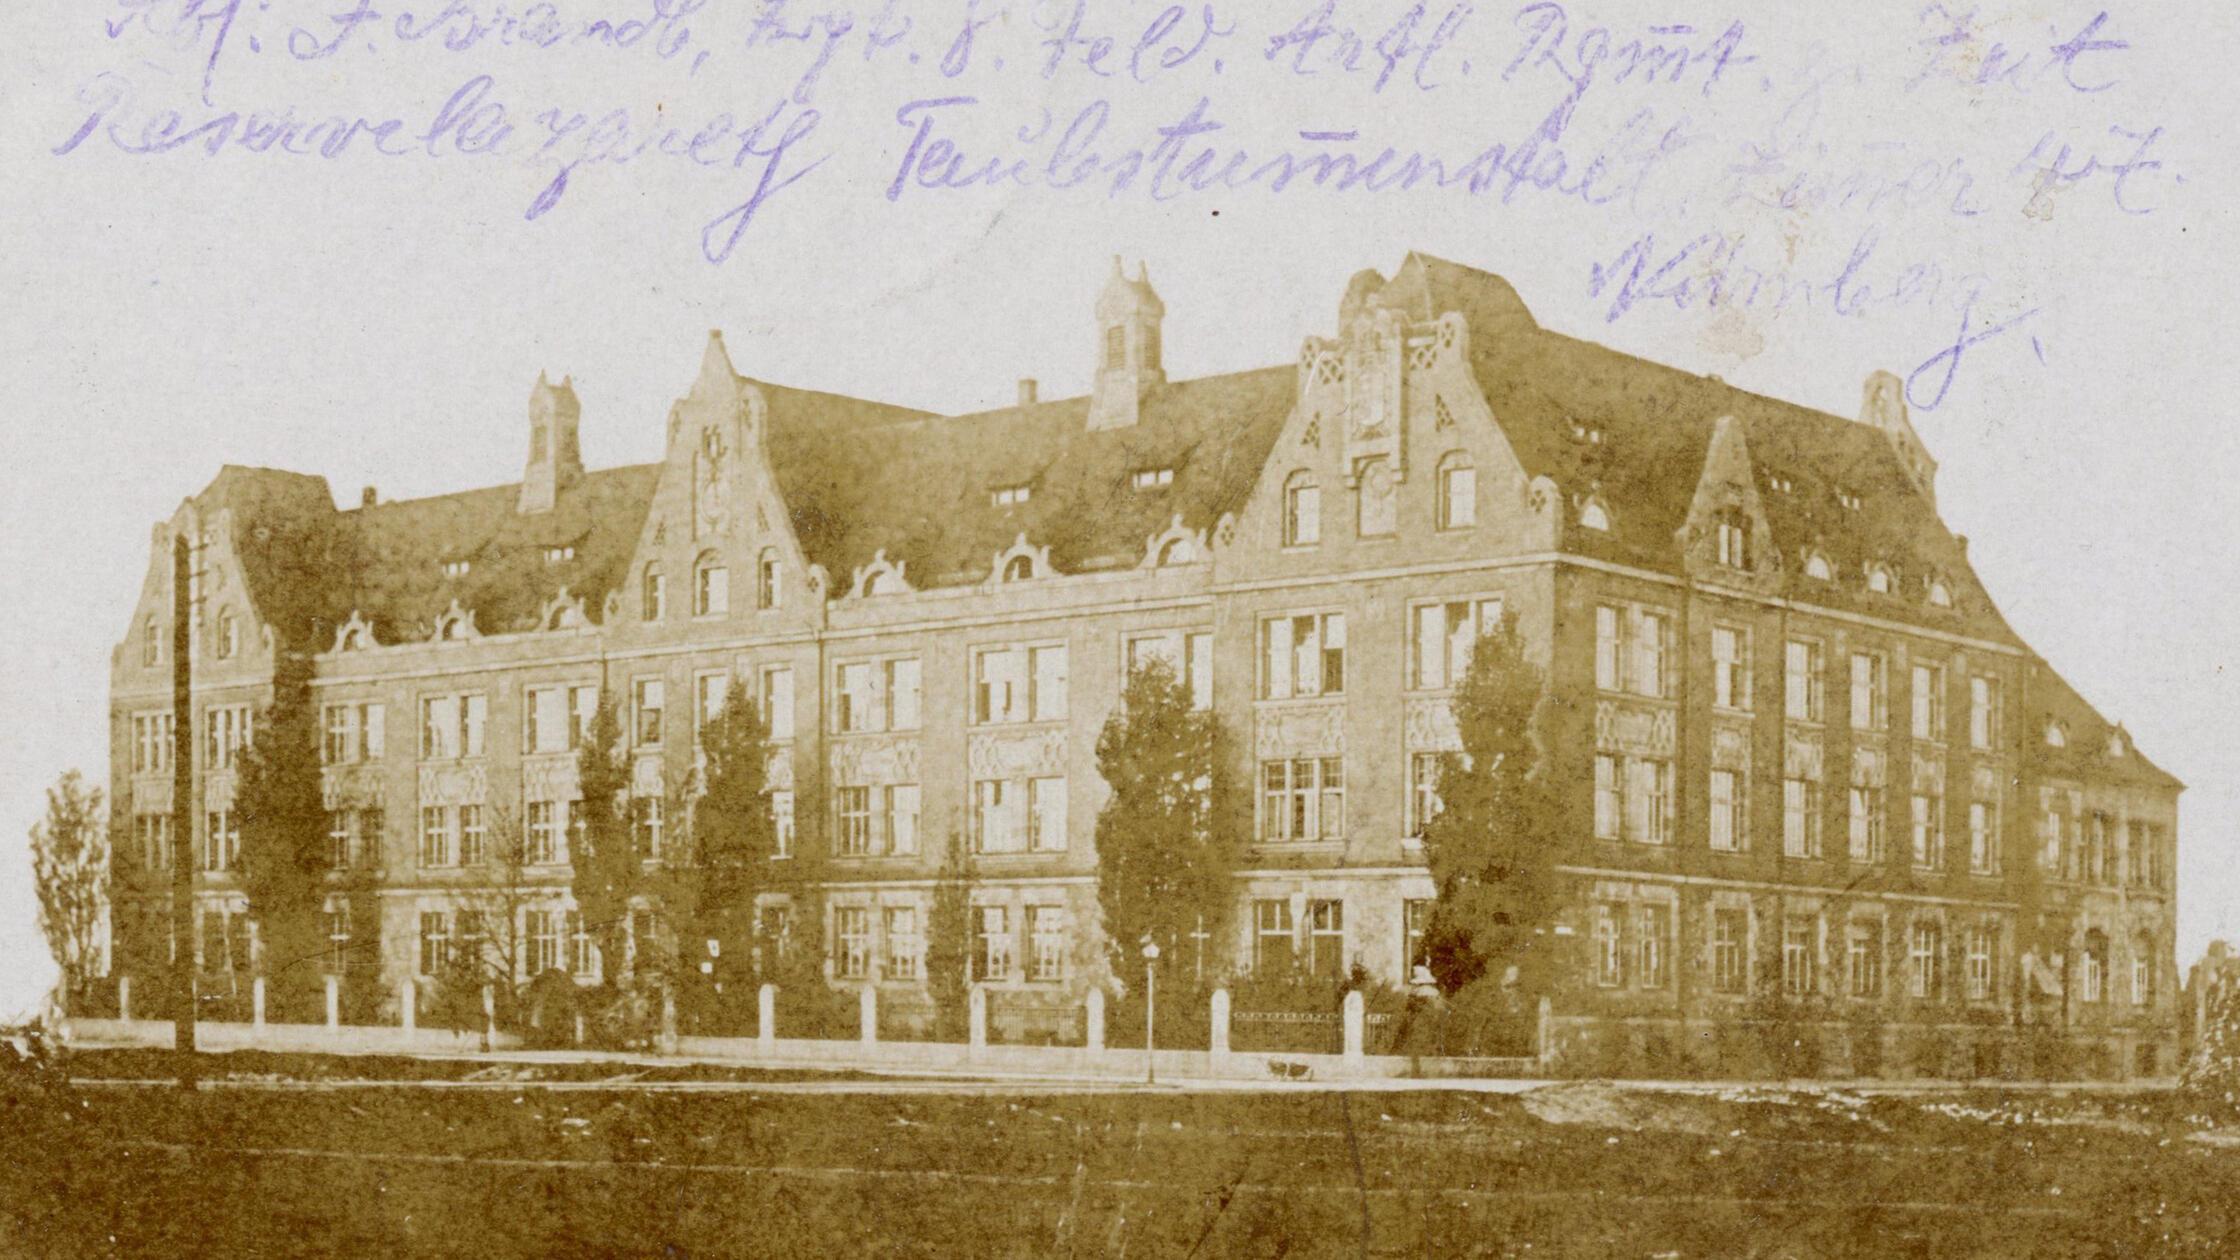 Abs: J. Brandl, 8. Feld. Artl. Rgm̄t. z. Zeit
Reservelazareth Taŭbstum̄enstalt Zim̄er 47.
Nürnberg,